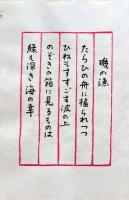 磯の漁
たらひの舟に揺られつつ
ひねもすすごす波の上
のぞきの箱に見るものは
緑も深き海の幸